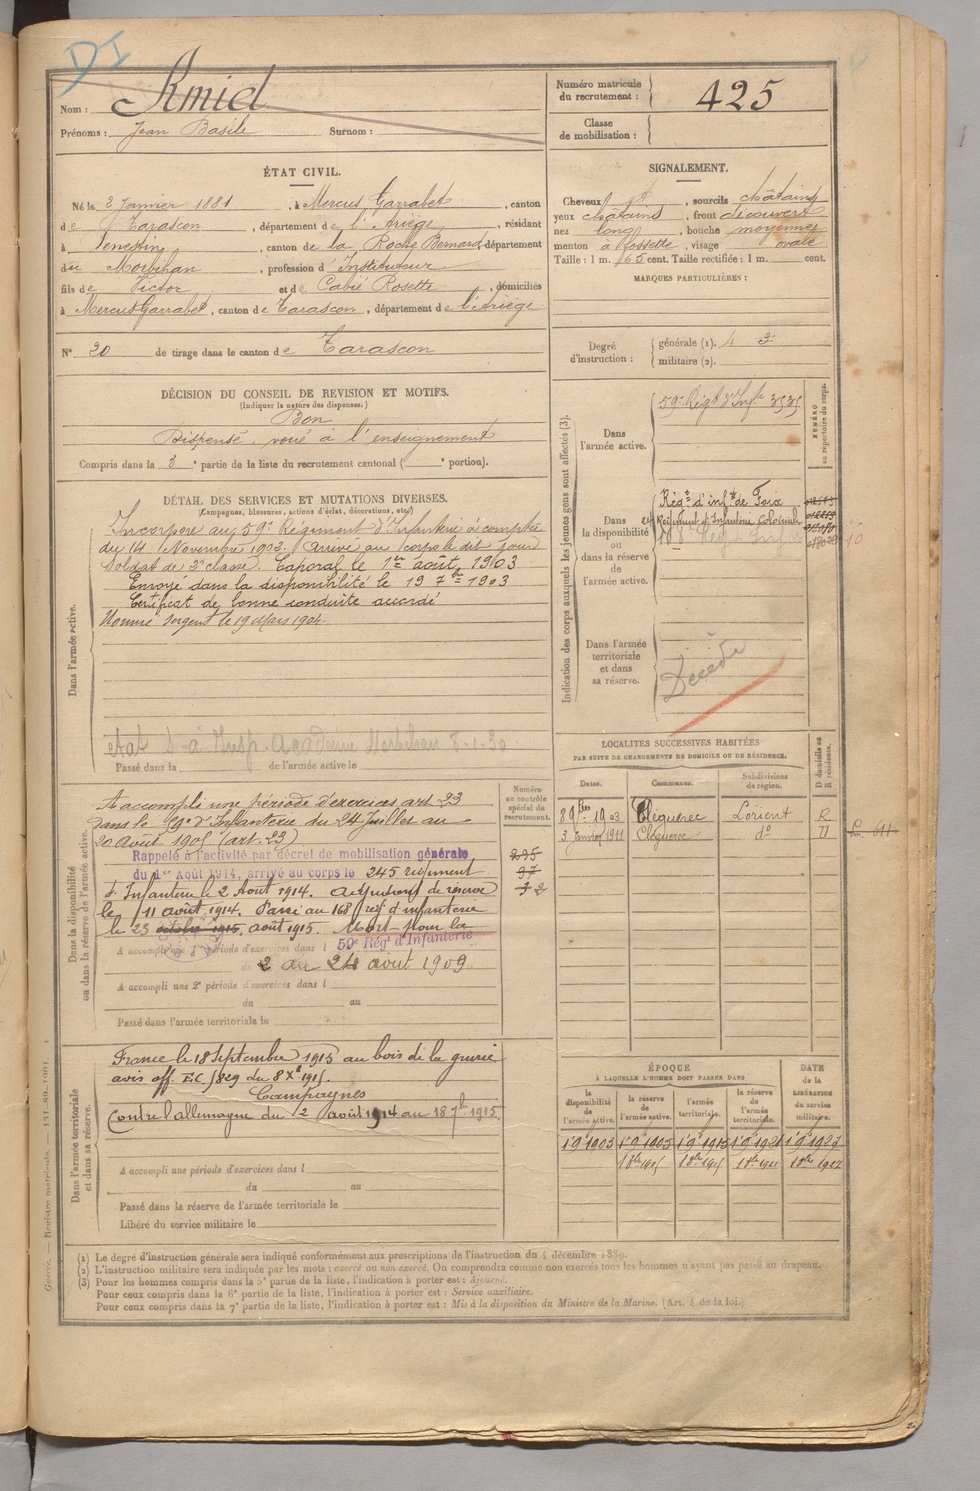 DI
Nom : Amiel
Prénoms : Jean Basile Surnom :
Numéro matricule du recrutement : 425
Classe de mobilisation :
ÉTAT CIVIL.
Né le 2 Janvier 1881, à Mercus Garrabet, canton
de Tarascon, département de l'Ariège, résidant
à, canton de la Roche Bernard, département
du Morbihan, profession d'Instituteur
fils de Victor et de Cabié Rosette, domiciliés
à Mercus Garrabet, canton de Tarascon, département de l'Ariège
N° 20 de tirage dans le canton de Tarascon
SIGNALEMENT.
Cheveux, sourcils châtains
yeux châtains, front découvert
nez long, bouche moyenne
menton à fossette, visage ovale
Taille : 1 m. 65 cent. Taille rectifiée : 1 m. cent.
MARQUES PARTICULIÈRES :
Degré d'instruction : générale (1). 3
militaire (2).
DÉCISION DU CONSEIL DE REVISION ET MOTIFS.
(Indiquer la nature des dispenses.)
Bon
Dispensé. voué à l'enseignement
Compris dans la 3e partie de la liste du recrutement cantonal ( e portion).
DÉTAIL DES SERVICES ET MUTATIONS DIVERSES.
(Campagnes, blessures, actions d'éclat, décorations, etc.)
Dans l'armée active.
Incorporé au 59e Régiment d'Infanterie à compter
du 14 Novembre 1902. Arrivé au corps le dit jour
Soldat de 2e classe. Caporal le 1er août 1903
Envoyé dans la disponibilité le 19 7bre 1903
Certificat de bonne conduite accordé
Nommé sergent le 19 Mars 1904.
état à Insp. Académie Morbihan 8-1-30
Passé dans la de l'armée active le
Indication des corps auxquels les jeunes gens sont affectés (3).
NUMÉRO au répertoire du corps.
Dans l'armée active.
59e Régt d'Infrie 3535
Dans la disponibilité ou dans la réserve de l'armée active.
Régt d'infie de Foix
Régiment d'Infanterie Coloniale
Dans l'armée territoriale et dans sa réserve.
Décédé
LOCALITÉS SUCCESSIVES HABITÉES
PAR SUITE DE CHANGEMENTS DE DOMICILE OU DE RÉSIDENCE.
D domicile ou R résidence.
Dates. Communes. Subdivisions de région.
8 9bre 1903 Cléguerec Lorient R
3 janvier 1911 Cléguerec do D
Dans la disponibilité ou dans la réserve de l'armée active.
Numéro au contrôle spécial du recrutement.
A accompli une période d'exercices art 23
dans le 59e d'Infanterie du 24 Juillet au
20 Août 1905 (art. 23)
Rappelé à l'activité par décret de mobilisation générale
du 1er Août 1914, arrivé au corps le 245 régiment
d'Infanterie le 2 Août 1914. Adjudant de réserve
le 11 août 1914. Passé au 168 régt d'infanterie
le 23 octobre 1915, août 1915. Mort pour la
A accompli une 1re période d'exercices dans l 59e Régt d'Infanterie
du 2 au 24 août 1909
A accompli une 2e période d'exercices dans l
du au
Passé dans l'armée territoriale le
Dans l'armée territoriale et dans sa réserve.
France le 18 Septembre 1915 au bois de la grurie
avis off. E.C./829 du 8 Xe 1915.
Campagnes
Contre l'allemagne du 2 août 1914 au 18 7bre 1915
A accompli une période d'exercices dans l
du au
Passé dans la réserve de l'armée territoriale le
Libéré du service militaire le
ÉPOQUE
À LAQUELLE L'HOMME DOIT PASSER DANS
DATE de la LIBÉRATION du service militaire.
la disponibilité de l'armée active. la réserve de l'armée active. l'armée territoriale. la réserve de l'armée territoriale.
1 9 1903 1 9 1905 1 9 1915 1 9 1921 1 9 1927
(1) Le degré d'instruction générale sera indiqué conformément aux prescriptions de l'instruction du 4 décembre 1889.
(2) L'instruction militaire sera indiquée par les mots : exercé ou non exercé. On comprendra comme non exercés tous les hommes n'ayant pas passé au drapeau.
(3) Pour les hommes compris dans la 5e partie de la liste, l'indication à porter est : Ajourné.
Pour ceux compris dans la 6e partie de la liste, l'indication à porter est : Service auxiliaire.
Pour ceux compris dans la 7e partie de la liste, l'indication à porter est : Mis à la disposition du Ministre de la Marine. (Art. 4 de la loi.)